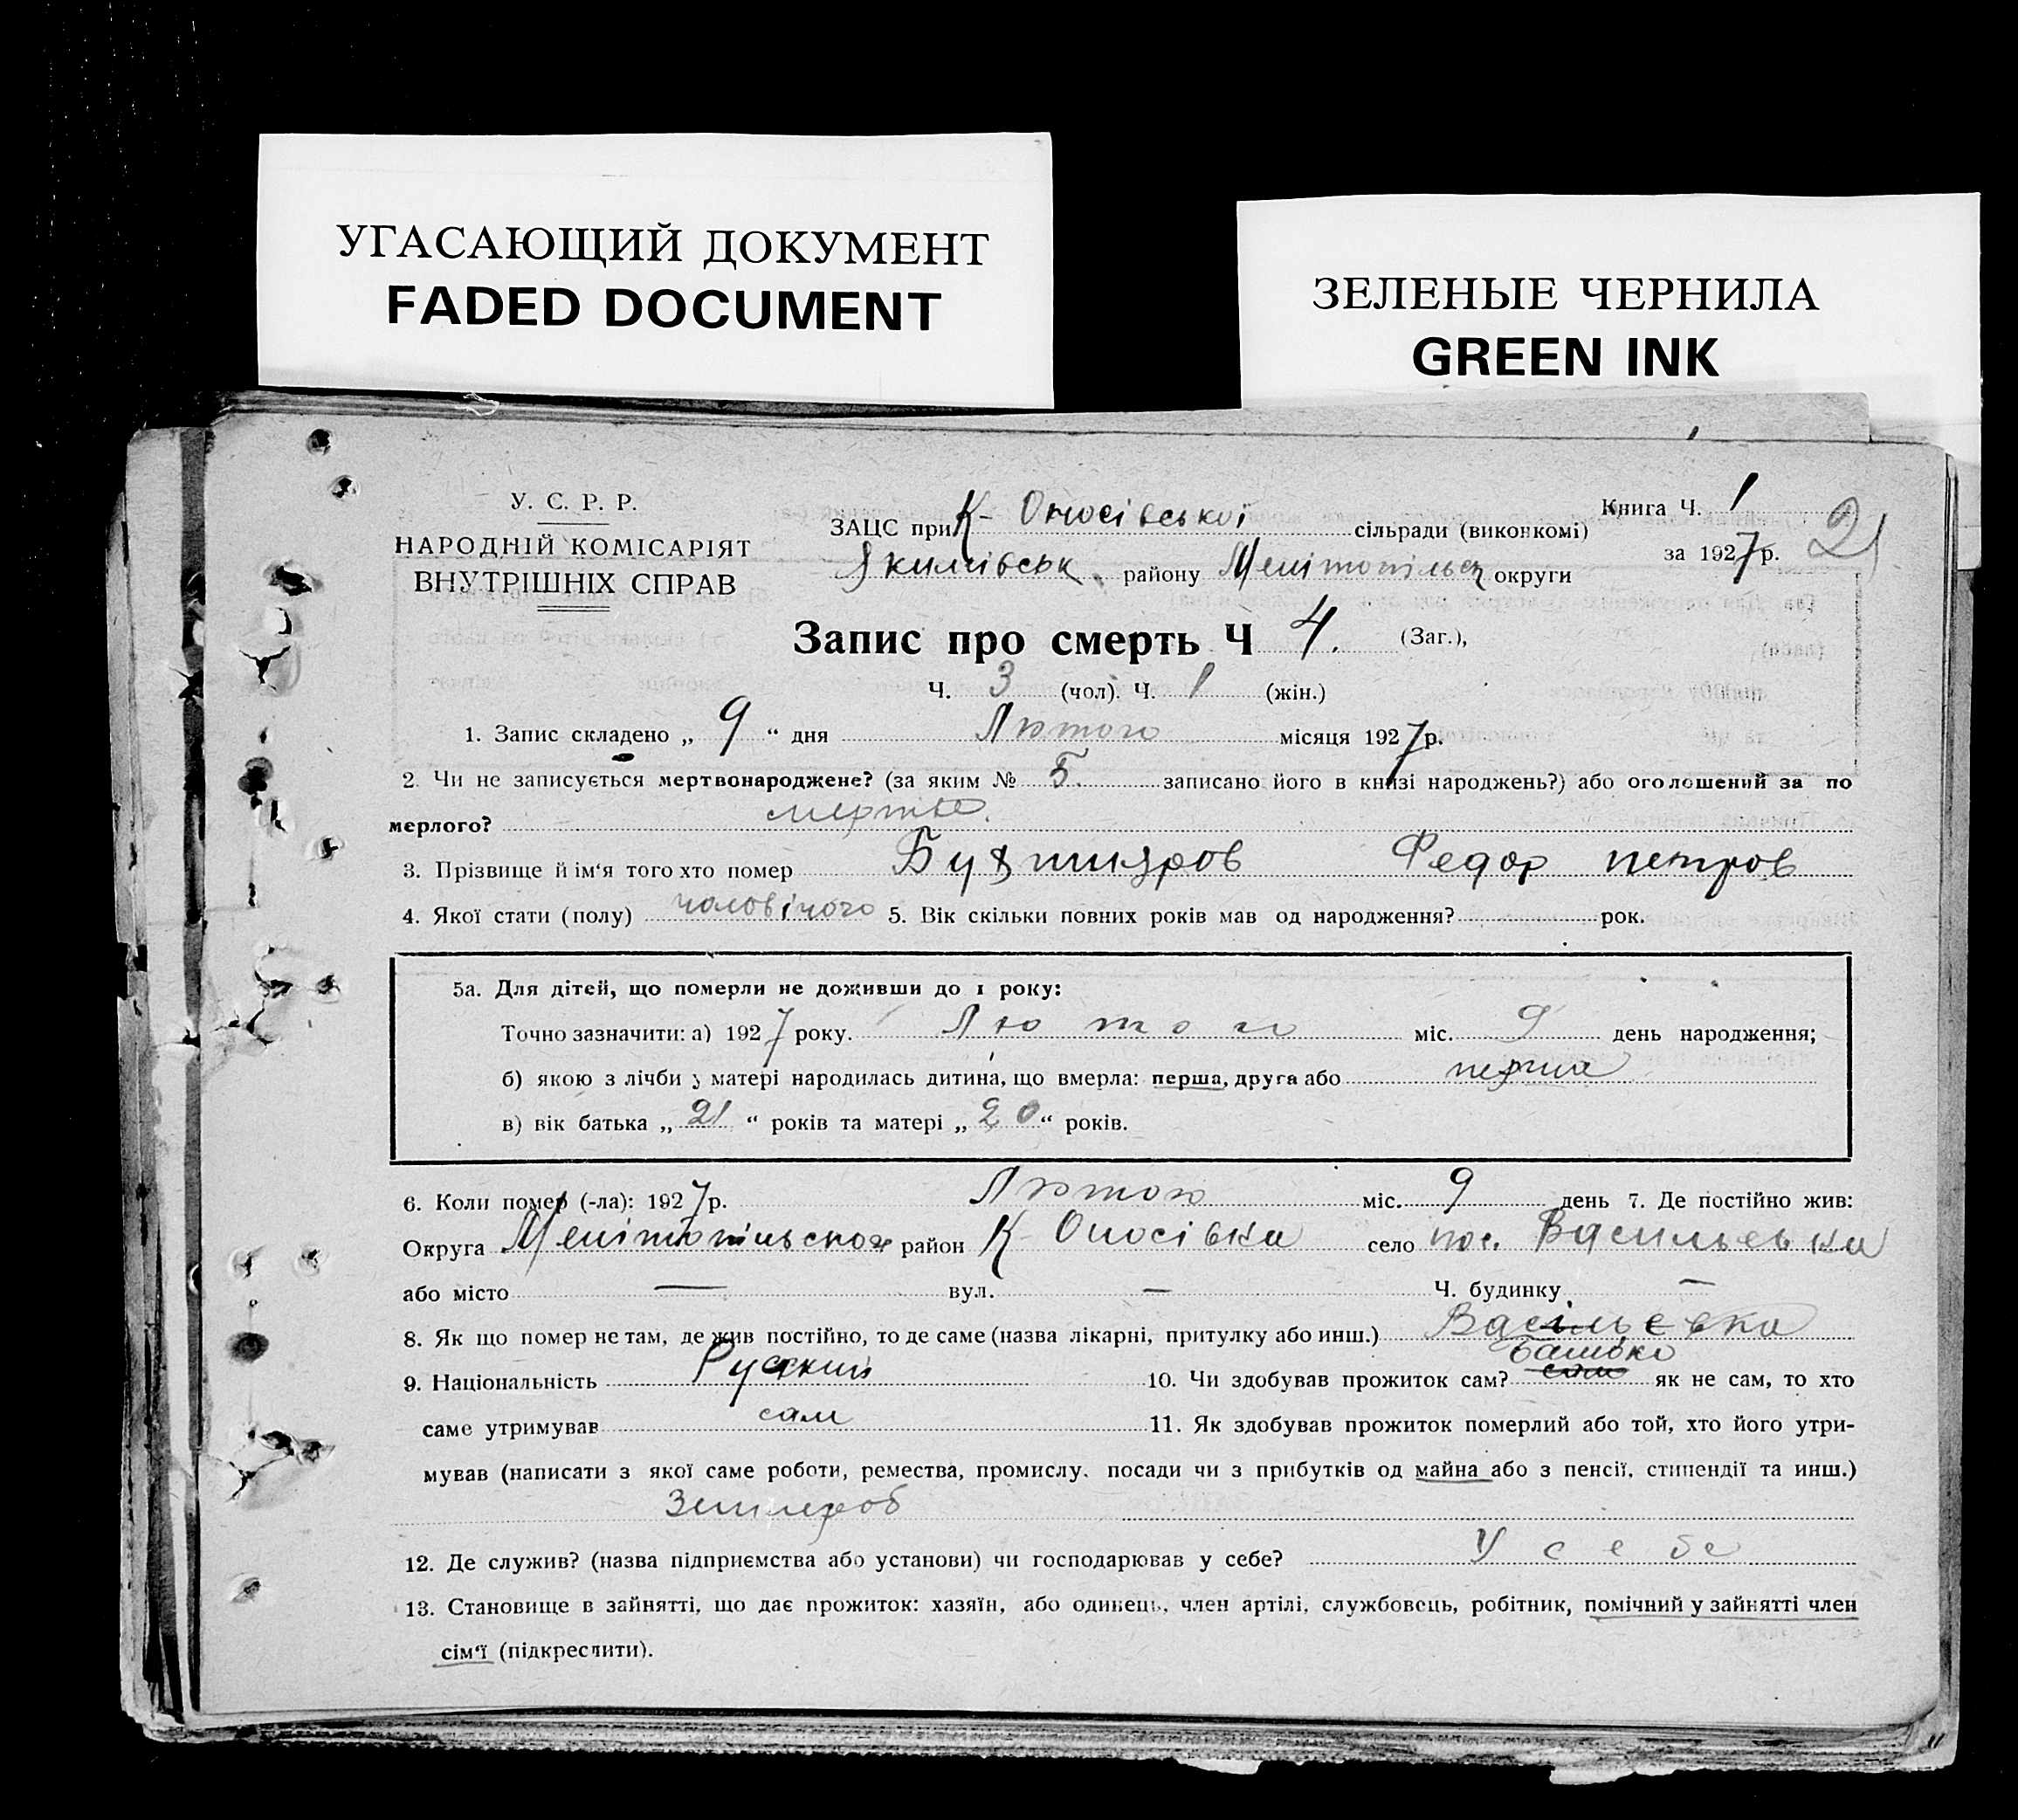 УГАСАЮЩИЙ ДОКУМЕНТ
FADED DOCUMENT
ЗЕЛЕНЫЕ ЧЕРНИЛА
GREEN INK
У. С. Р. Р.
НАРОДНІЙ КОМІСАРІЯТ
ВНУТРІШНІХ СПРАВ
ЗАЦС при К- Оносівської сільради (виконкомі)
Якимівськ. району Мелітопільск округи
Книга Ч. 1
за 1927 р.
21
Запис про смерть Ч 4. (Заг.),
Ч. 3 (чол). Ч. 1 (жін.)
1. Запис складено „ 9 “ дня Лютого місяця 1927 р.
2. Чи не записується мертвонароджене? (за яким № 5. записано його в книзі народжень?) або оголошений за по
мерлого? мертве.
3. Прізвище й ім‘я того хто помер Федор петров
4. Якої стати (полу) чоловічого 5. Вік скільки повних років мав од народження? рок.
5а. Для дітей, що померли не доживши до 1 року:
Точно зазначити: а) 1927 року. Лютого міс. 9 день народження;
б) якою з лічби у матері народилась дитина, що вмерла: перша, друга або перша
в) вік батька „ 21 “ років та матері „ 20 “ років.
6. Коли помер (-ла): 1927 р. Лютого міс. 9 день 7. Де постійно жив:
Округа Мелітопільской район К- Оносівка село пос. Васильевка
або місто — вул. — Ч. будинку —
8. Як що помер не там, де жив постійно, то де саме (назва лікарні, притулку або инш.) Васільевка
9. Національність Русский 10. Чи здобував прожиток сам? сам батько як не сам, то хто
саме утримував сам 11. Як здобував прожиток померлий або той, хто його утри-
мував (написати з якої саме роботи, ремества, промислу, посади чи з прибутків од майна або з пенсії, стипендії та инш.)
12. Де служив? (назва підприємства або установи) чи господарював у себе? У себе
13. Становище в зайнятті, що дає прожиток: хазяїн, або одинець, член артілі, службовець, робітник, помічний у зайнятті член
сім‘ї (підкреслити).